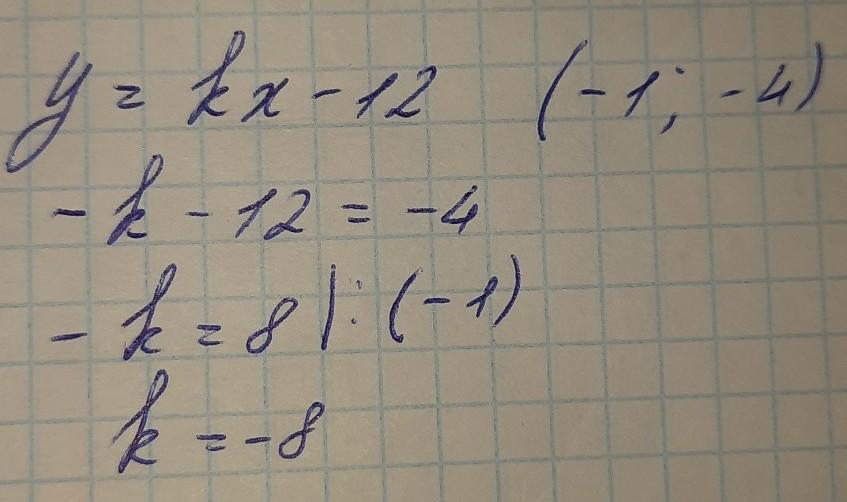 y = kx - 12 (-1; -4)
-k - 12 = -4
-k = 8 |: (-1)
k = -8